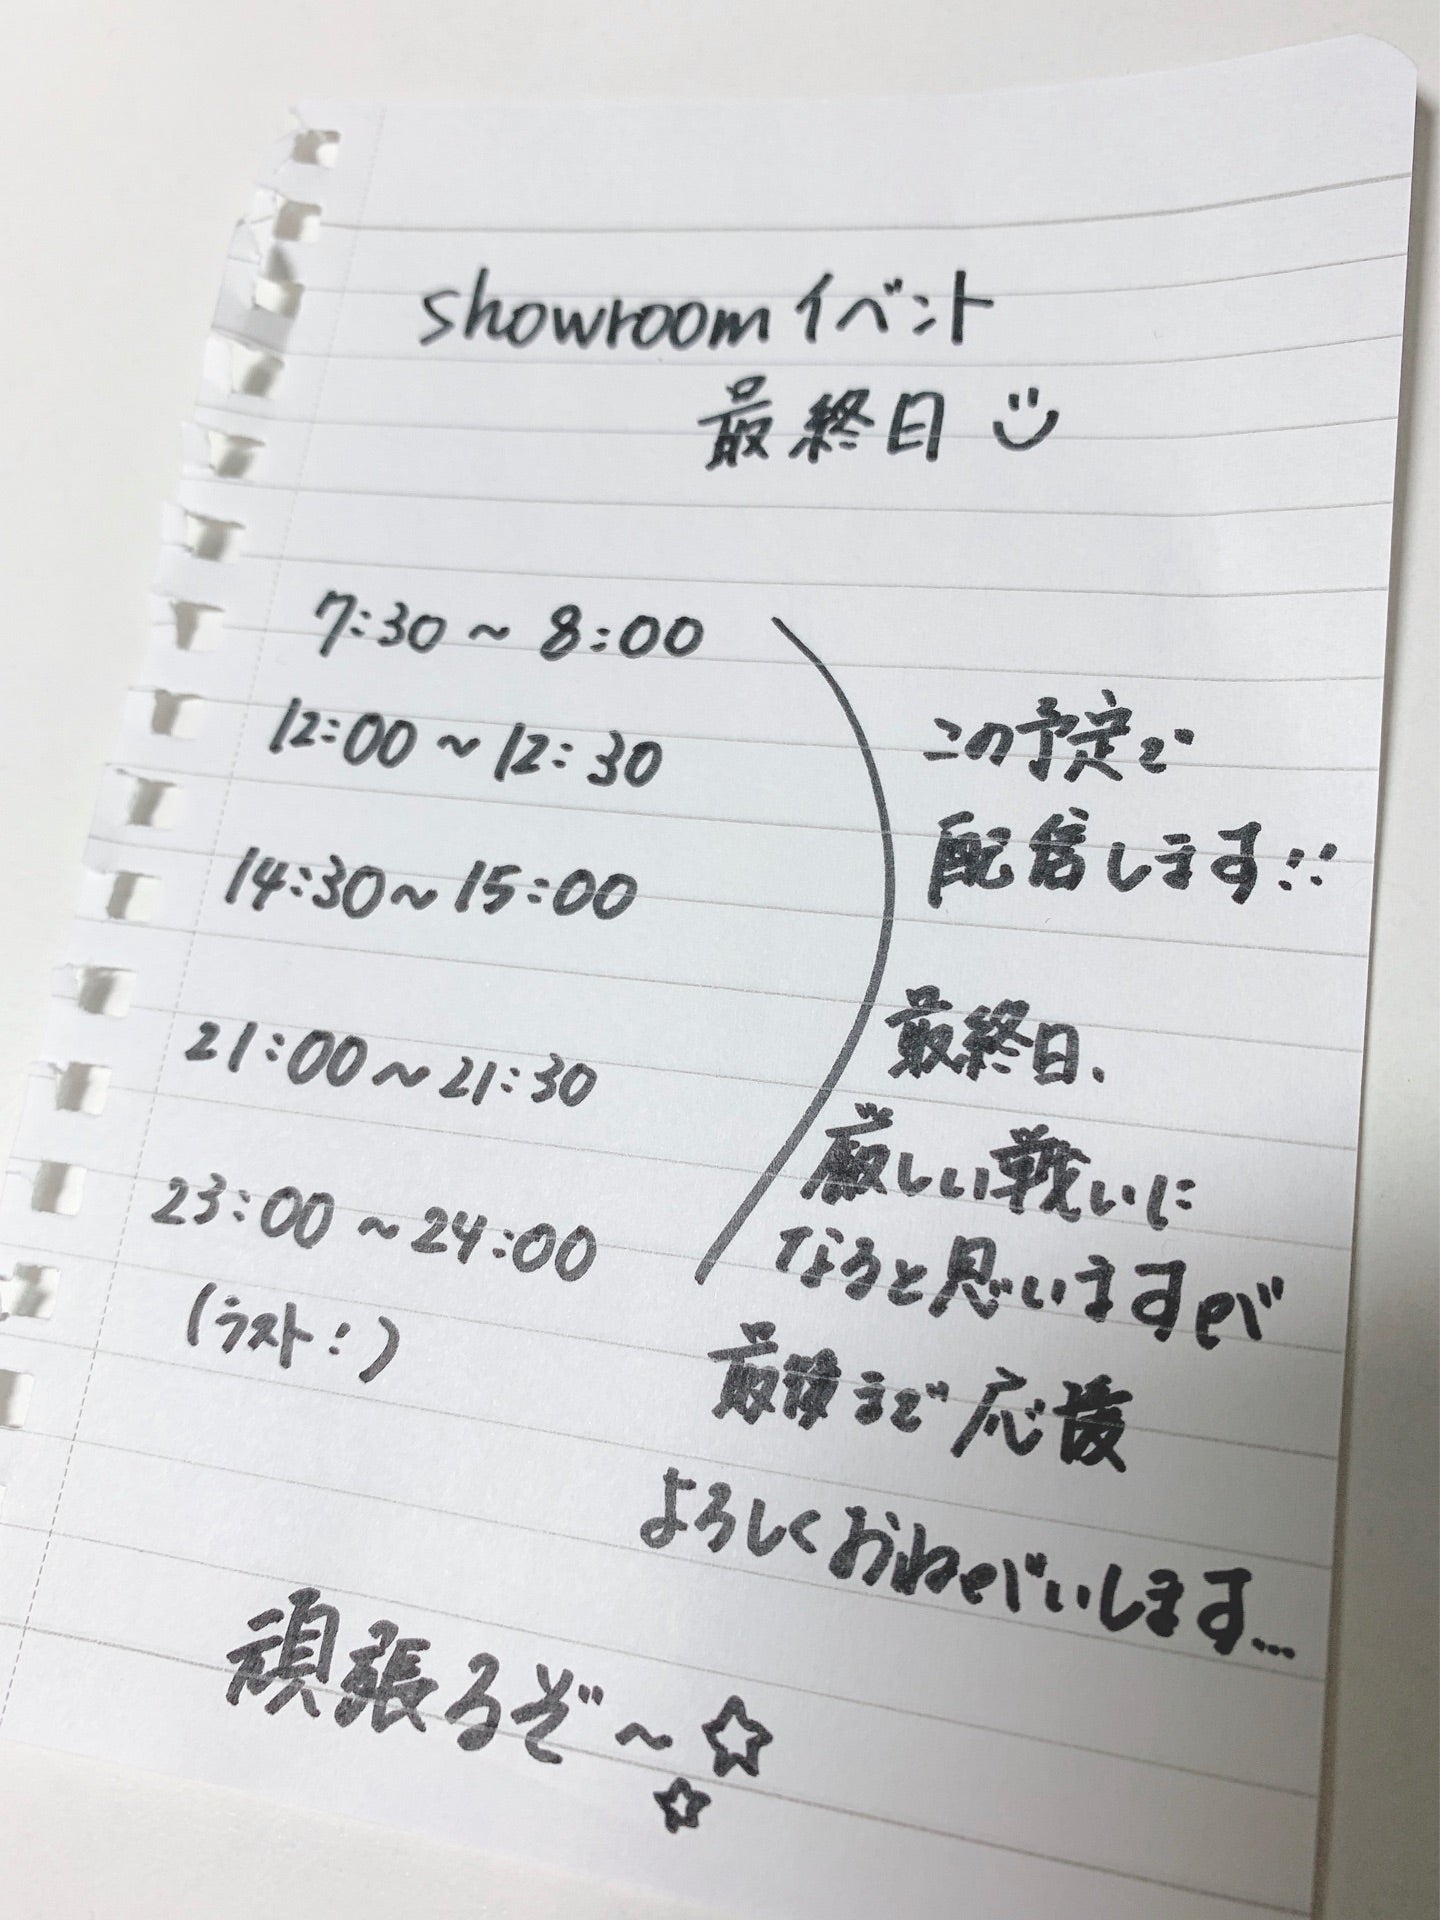 showroomイベント
最終日
7:30～8:00
12:00～12:30
14:30～15:00
21:00～21:30
23:00～24:00
(ラスト:)
この予定で
配信します!!
最終日、
厳しい戦いに
なると思いますが
最後まで応援
よろしくおねがいします...
頑張るぞ～☆
☆